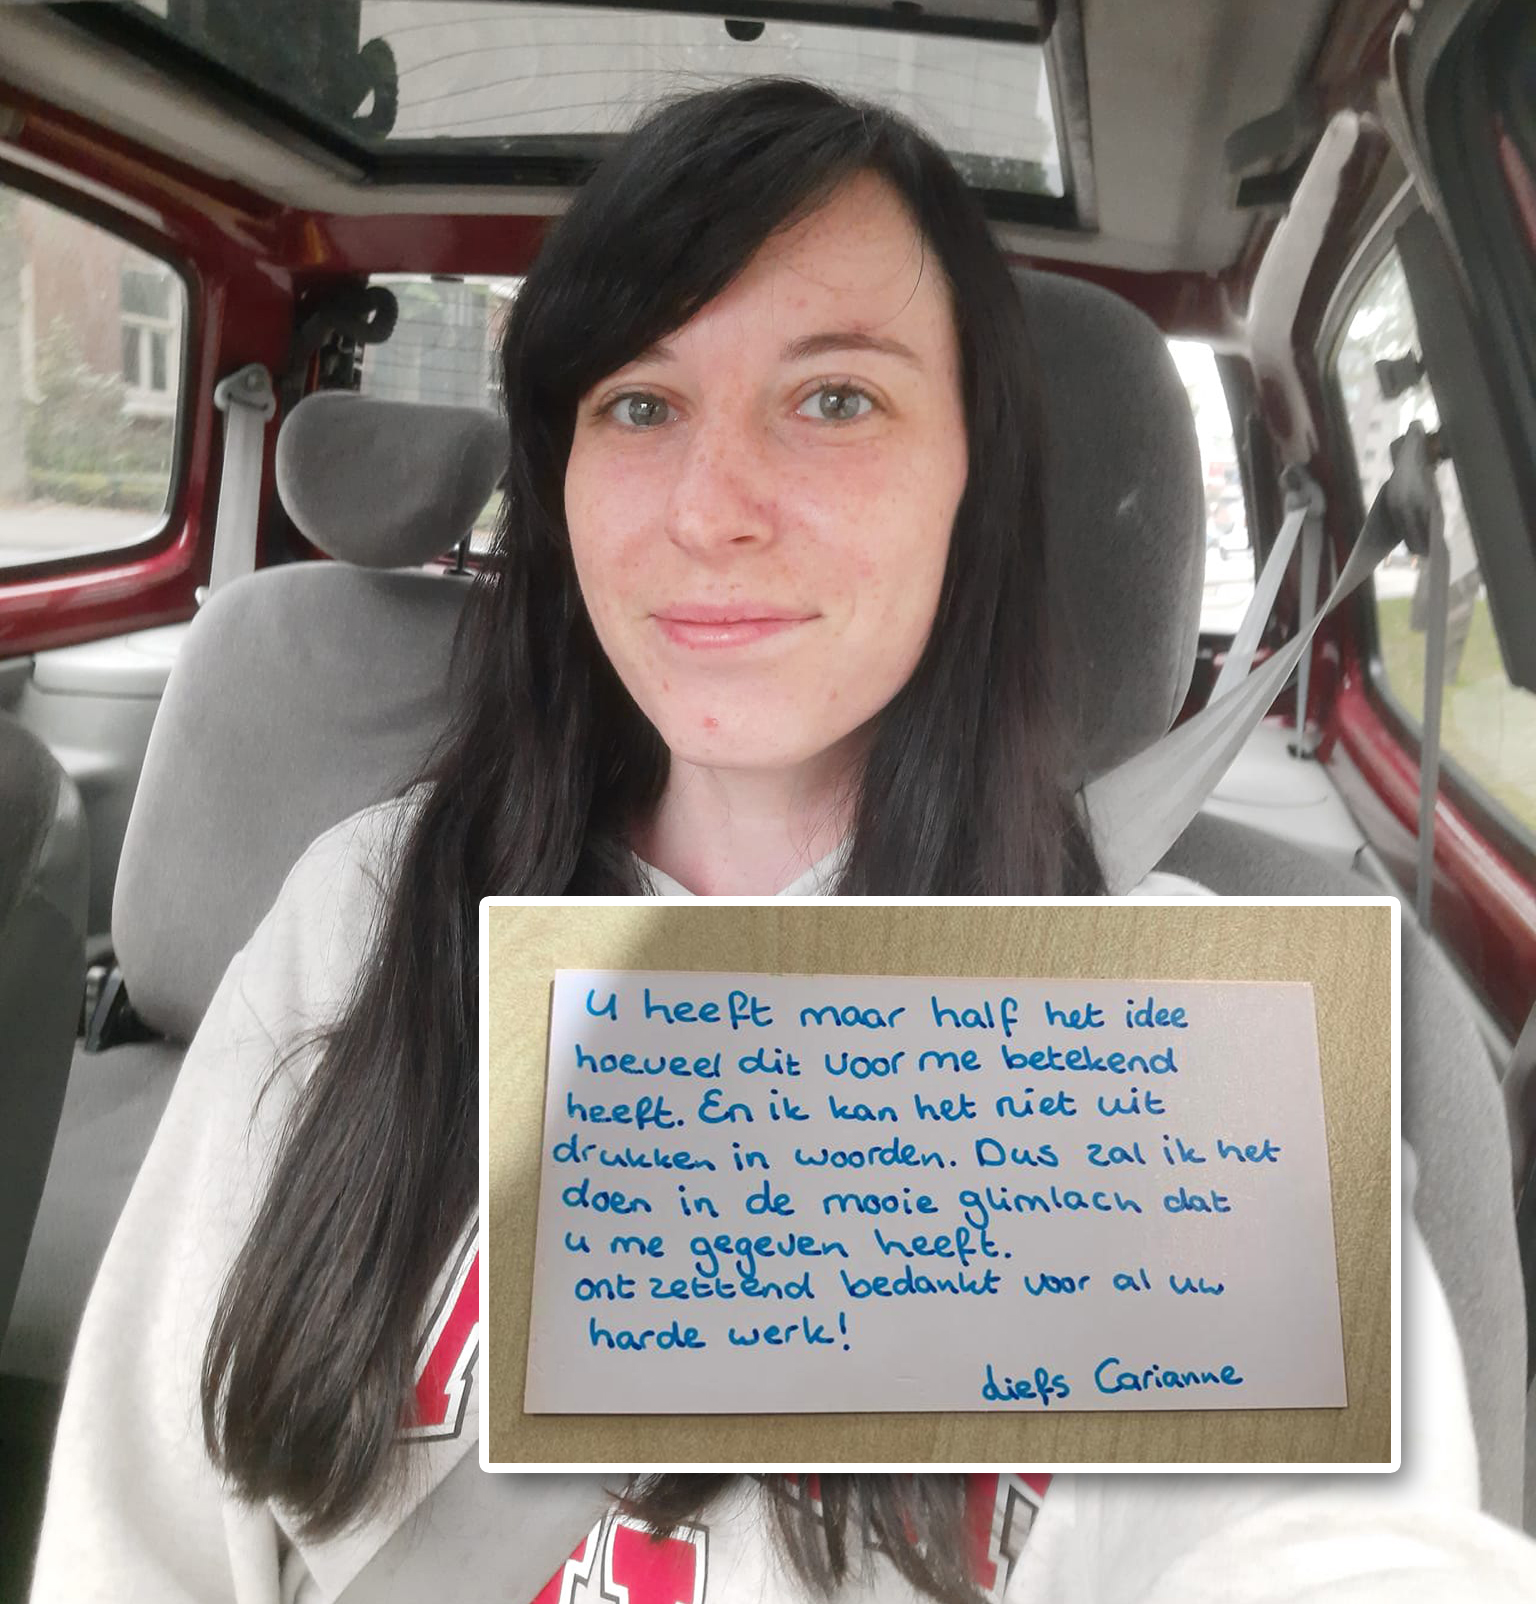 U heeft maar half het idee
hoeveel dit voor me betekend
heeft. En ik kan het niet uit
drukken in woorden. Dus zal ik het
doen in de mooie glimlach dat
u me gegeven heeft.
ontzettend bedankt voor al uw
harde werk!
liefs Carianne